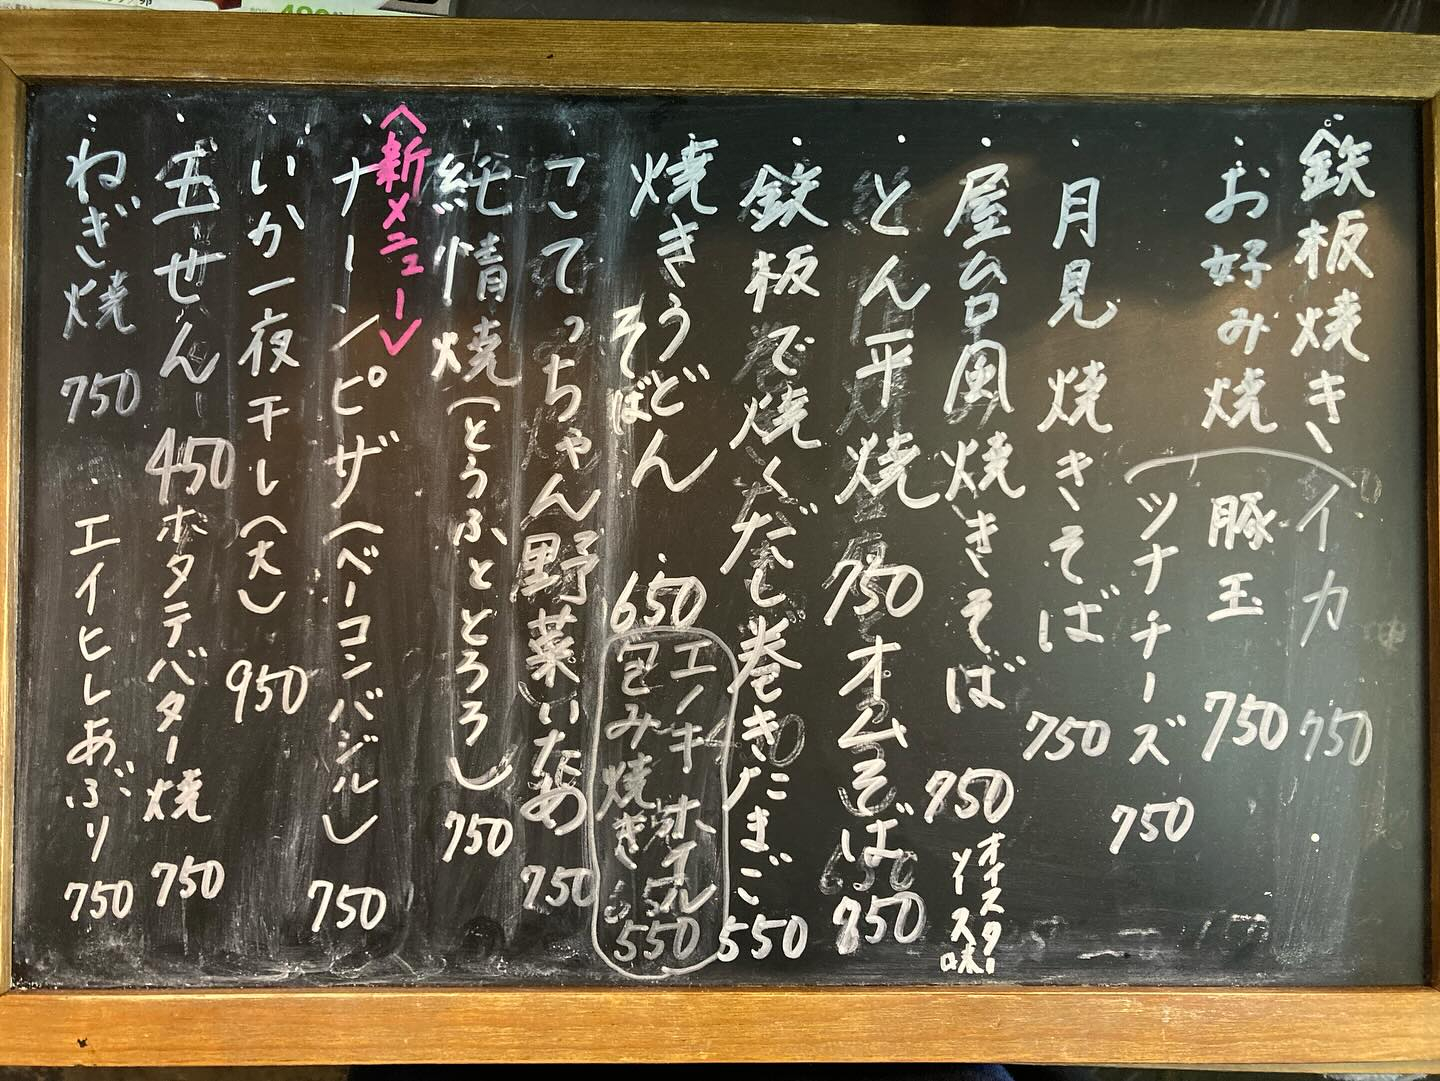 鉄板焼き
・お好み焼(イカ 750
豚玉 750
ツナチーズ 750
・月見焼きそば 750
・屋台風焼きそば 750
オイスターソース味
・とん平焼 750
オムそば 850
・鉄板で焼くだし巻きたまご 550
・焼きうどん
そば
650
エノキホイル
包み焼き
550
・こてっちゃん野菜いため 750
・純情焼(とうふととろろ) 750
〈新メニュー〉
・ナーンピザ(ベーコンバジル) 750
・いか一夜干し(大) 950
・玉せん 450
ホタテバター焼 750
・ねぎ焼 750
・エイヒレあぶり 750